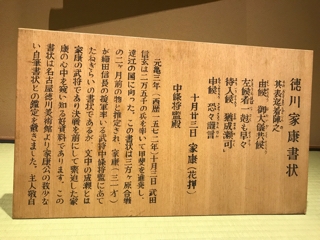 徳川家康書状
其表定番陣之
由候、御大儀共候
左候者一剋も早々
待入候、猶成瀬可
申候、恐々謹言
十月廿三日 家康(花押)
中條将監殿
元亀三年(西歴一五七二年)十月三日武田
信玄は二万五千の兵を率いて甲斐を進発し
遠江の国に向った。この書状は三方ヶ原合戦
の二ヶ月前の物と推定され、家康(三一才)
が織田信長の援軍である武将中條将監にあて
たねぎらいの書状であるが、文中の成瀬とは
家康の武将であり決戦を前にして緊迫した家
康の心中を窺い知る好資料であります。この
書状は名古屋徳川美術館より家康公の数少な
い自筆書状との鑑定を戴きました。主人敬白